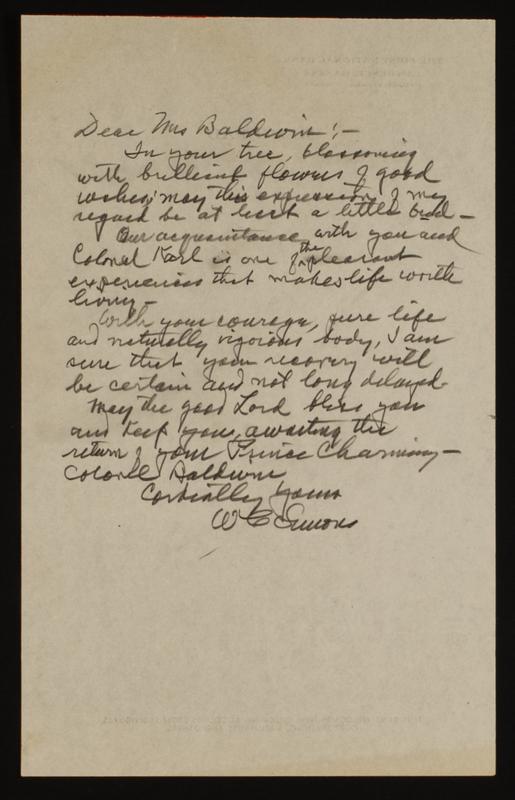 Dear Mrs Baldwin:-
In your tree, blossoming
with brilliant flowers of good
wishes, may this expression of my
regard be at least a little bud-
Our acquaintance with you and
Colonel Karl is one of the pleasant
experiences that makes life worth
living-
With your courage, pure life
and naturally vigorous body, I am
sure that your recovery will
be certain and not long delayed.
May the good Lord bless you
and keep you, awaiting the
return of your Prince Charming-
Colonel Baldwin
Cordially Yours
W C Simons